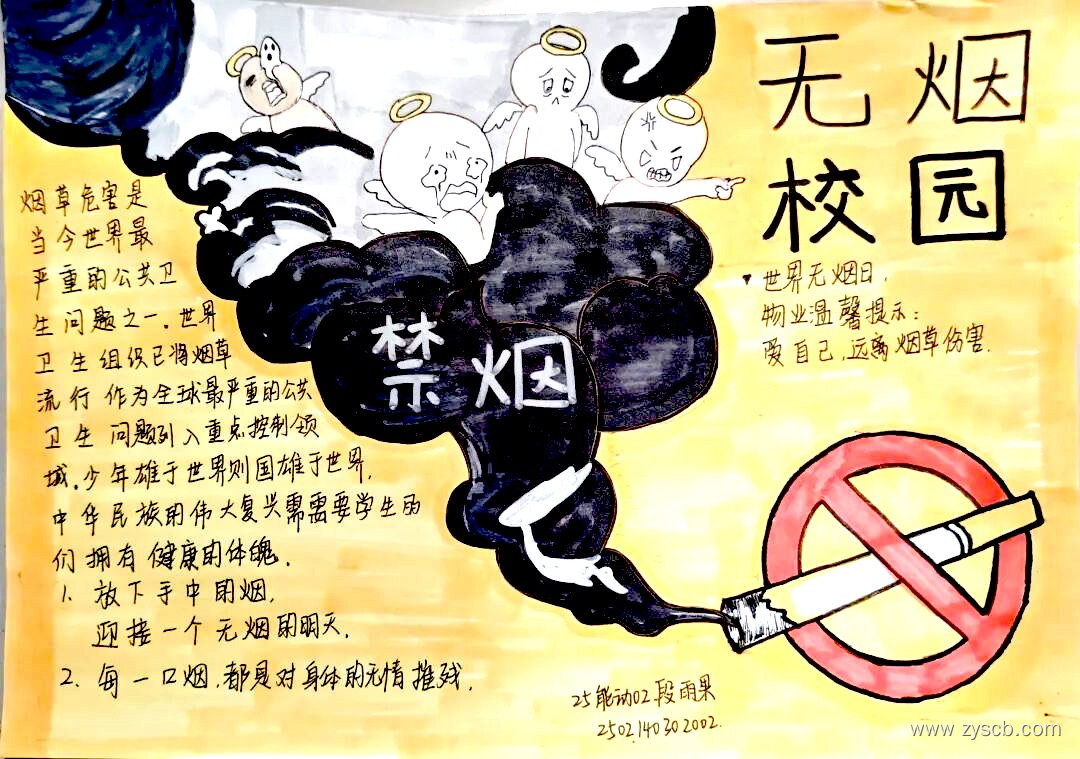 无烟
校园
世界无烟日,
物业温馨提示:
爱自己,远离烟草伤害.
禁烟
烟草危害是
当今世界最
严重的公共卫
生问题之一.世界
卫生组织已将烟草
流行作为全球最严重的公共
卫生问题列入重点控制领
域.少年雄于世界则国雄于世界.
中华民族的伟大复兴需需要学生的
们拥有健康的体魄.
1. 放下手中的烟.
迎接一个无烟的明天.
2. 每一口烟.都是对身体的无情摧残.
25能动02.段雨果
2502140302002.
www.zyscb.com